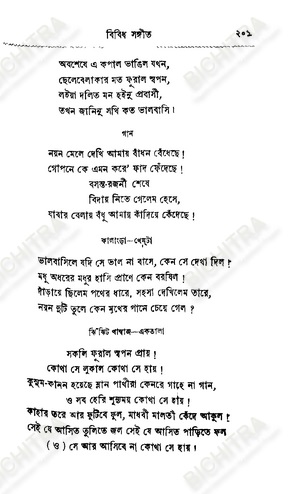 বিবিধ সঙ্গীত ২০৯
অবশেষে এ কপাল ভাঙিল যখন,
ছেলেবেলাকার মত ফুরাল স্বপন,
লইয়া দলিত মন হইনু প্রবাসী,
তখন জানিনু সখি কত ভালবাসি।
গান
নয়ন মেলে দেখি আমায় বাঁধন বেঁধেছে!
গোপনে কে এমন করে' ফাঁদ ফেঁদেছে!
বসন্ত-রজনী শেষে
বিদায় নিতে গেলেম হেসে,
যাবার বেলায় বঁধু আমায় কাঁদিয়ে কেঁদেছে!
কালাংড়া—খেম্‌টা
ভালবাসিলে যদি সে ভাল না বাসে, কেন সে দেখা দিল?
মধু অধরের মধুর হাসি প্রাণে কেন বরষিল!
দাঁড়ায়ে ছিলেম পথের ধারে, সহসা দেখিলেম তারে,
নয়ন দুটি তুলে কেন মুখের পানে চেয়ে গেল?
ঝিঁঝিট খাম্বাজ—একতালা
সকলি ফুরাল স্বপন প্রায়!
কোথা সে লুকাল কোথা সে হায়!
কুসুম-কানন হয়েছে ম্লান পাখীরা কেনরে গাহে না গান,
ও সব হেরি শূন্যময় কোথা সে হায়!
কাহার তরে আর ফুটিবে ফুল, মাধবী মালতী কেঁদে আকুল?
সেই যে আসিত তুলিতে জল সেই যে আসিত পাড়িতে ফল
( ও ) সে আর আসিবে না কোথা সে হায়।
BICHITRA